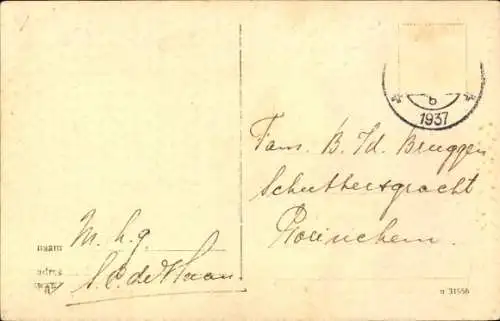 M. h. g.
naam
adres
S. P. de Haan
6
1937
Fam. B. v/d. Bruggen
Schuttersgracht
Gorinchem.
n 31956